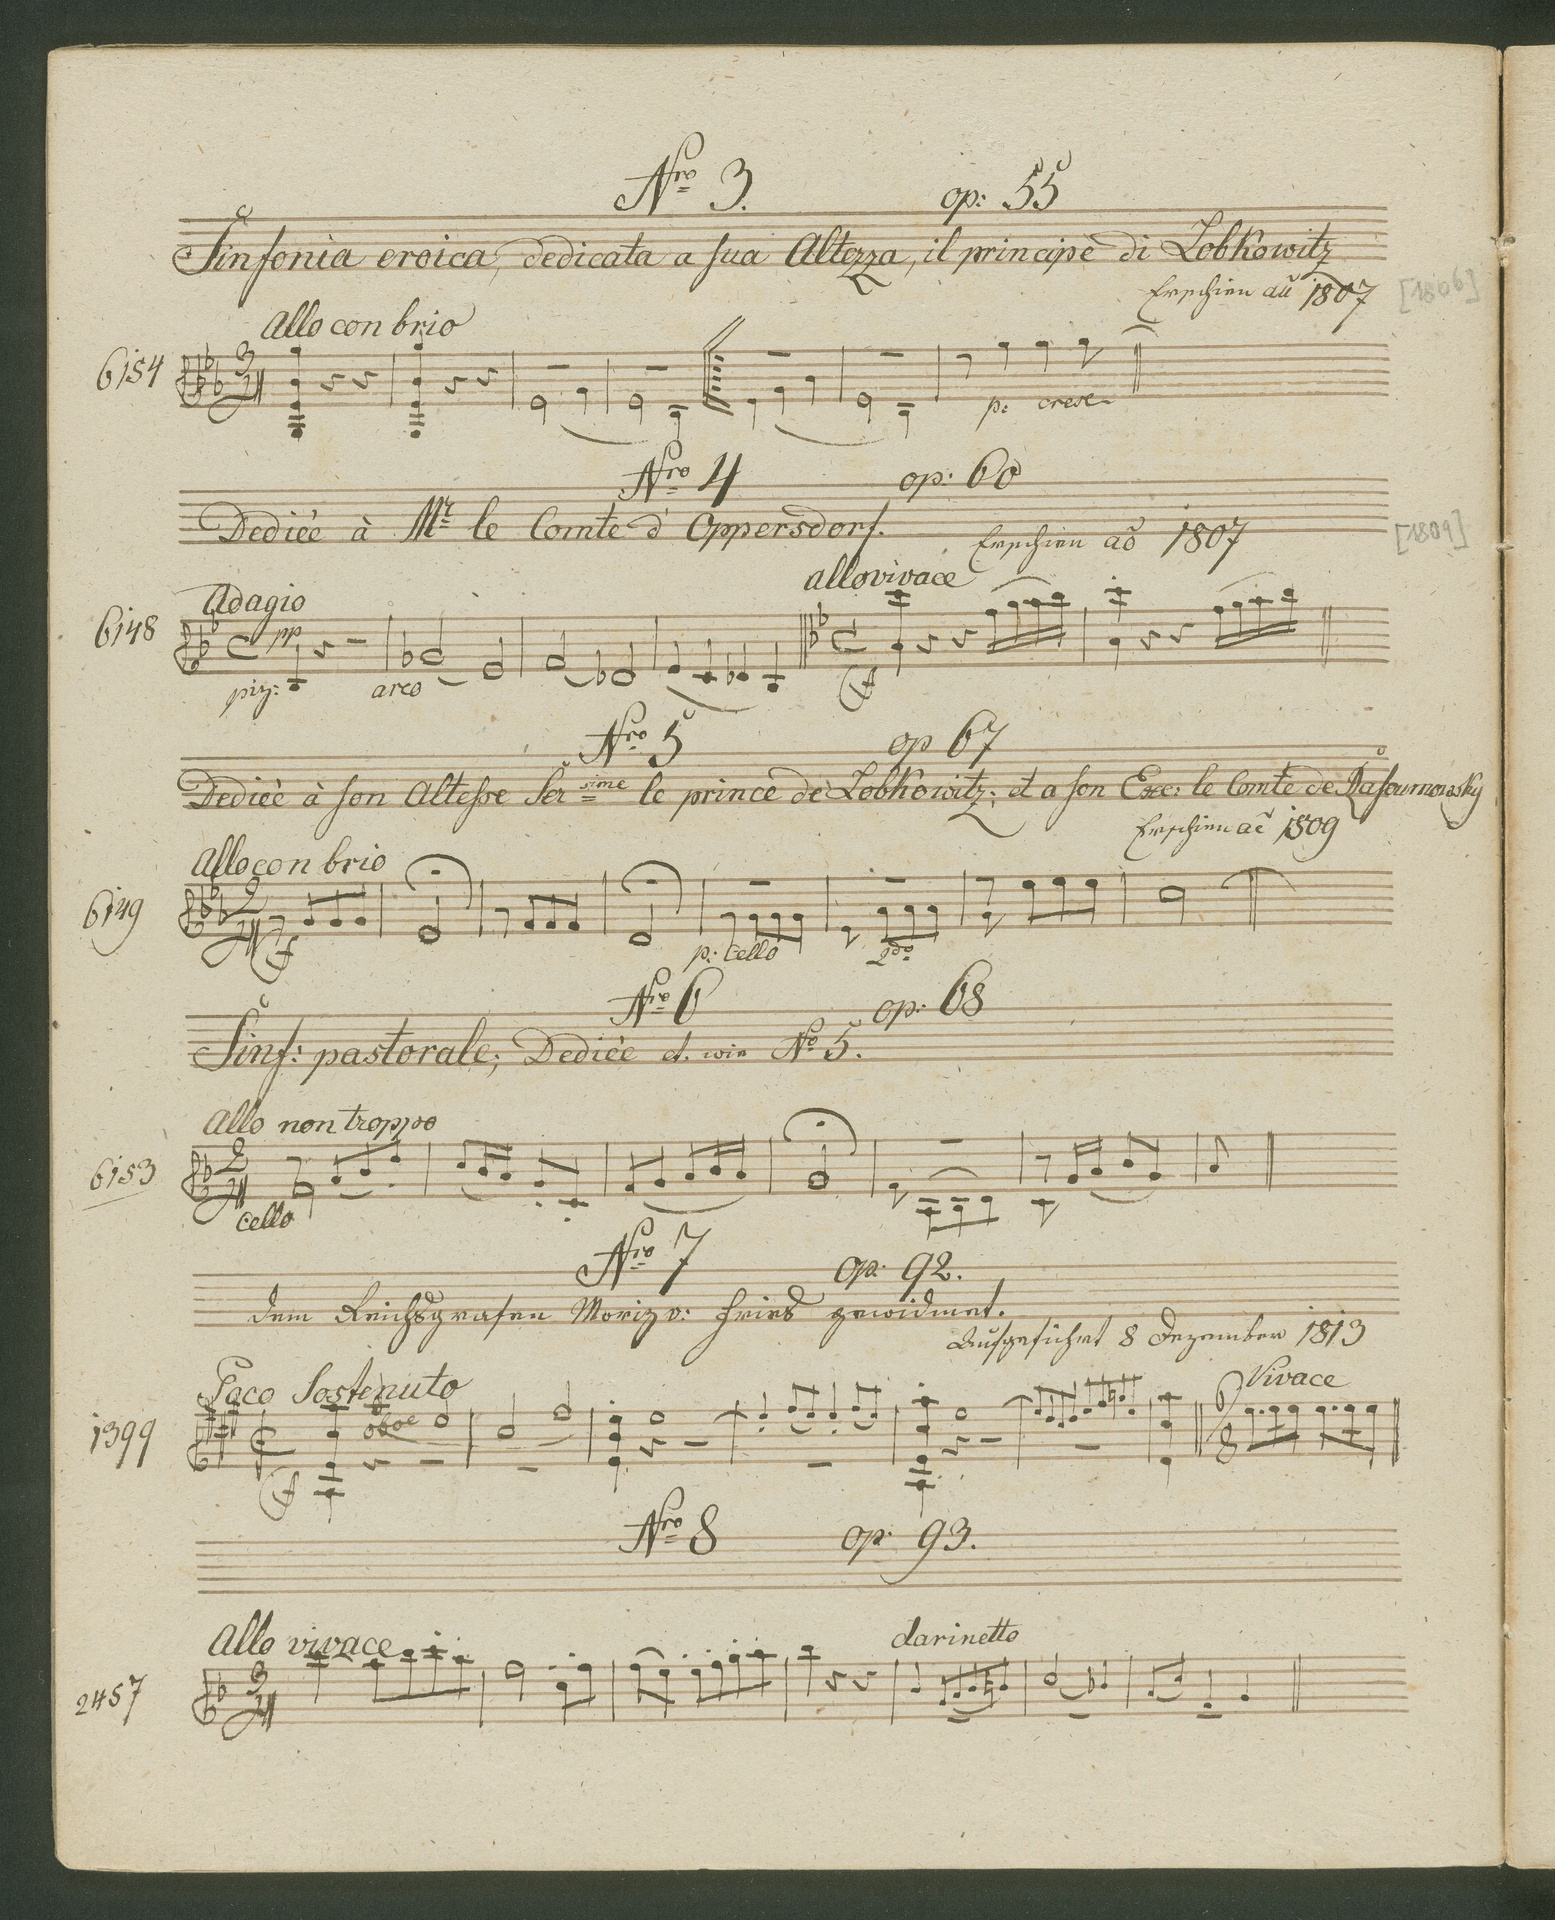 Nro 3. op: 55
Sinfonia eroica, dedicata a sua Altezza, il principe di Lobkowitz
Erschien aũ 1807 [1806]
Allo con brio
6154
p: cresc
Nro 4 op: 60
Dediée à Mr le Comte d'Oppersdorf.
Erschien aõ 1807 [1809]
Adagio
allo vivace
6148
pp
piz: arco
ff
Nro 5 op 67
Dediée à son Altesse Ser sime le prince de Lobkowitz; et a son Exc: le Comte de Rasoumowsky
Erschien aõ 1809
Allo con brio
6149
2/4
ff
p: cello 2do
Nro 6 op: 68
Sinf: pastorale; Dediée et. wie No 5.
Allo non troppo
6153
2/4
cello
Nro 7 op: 92.
dem Reichsgrafen Moriz v: Fries gewidmet.
Aufgeführt 8 Dezember 1813
Poco Sostenuto
Vivace
1399
oboe
6/8
ff
Nro 8 op: 93.
Allo vivace
clarinetto
2457
3/4